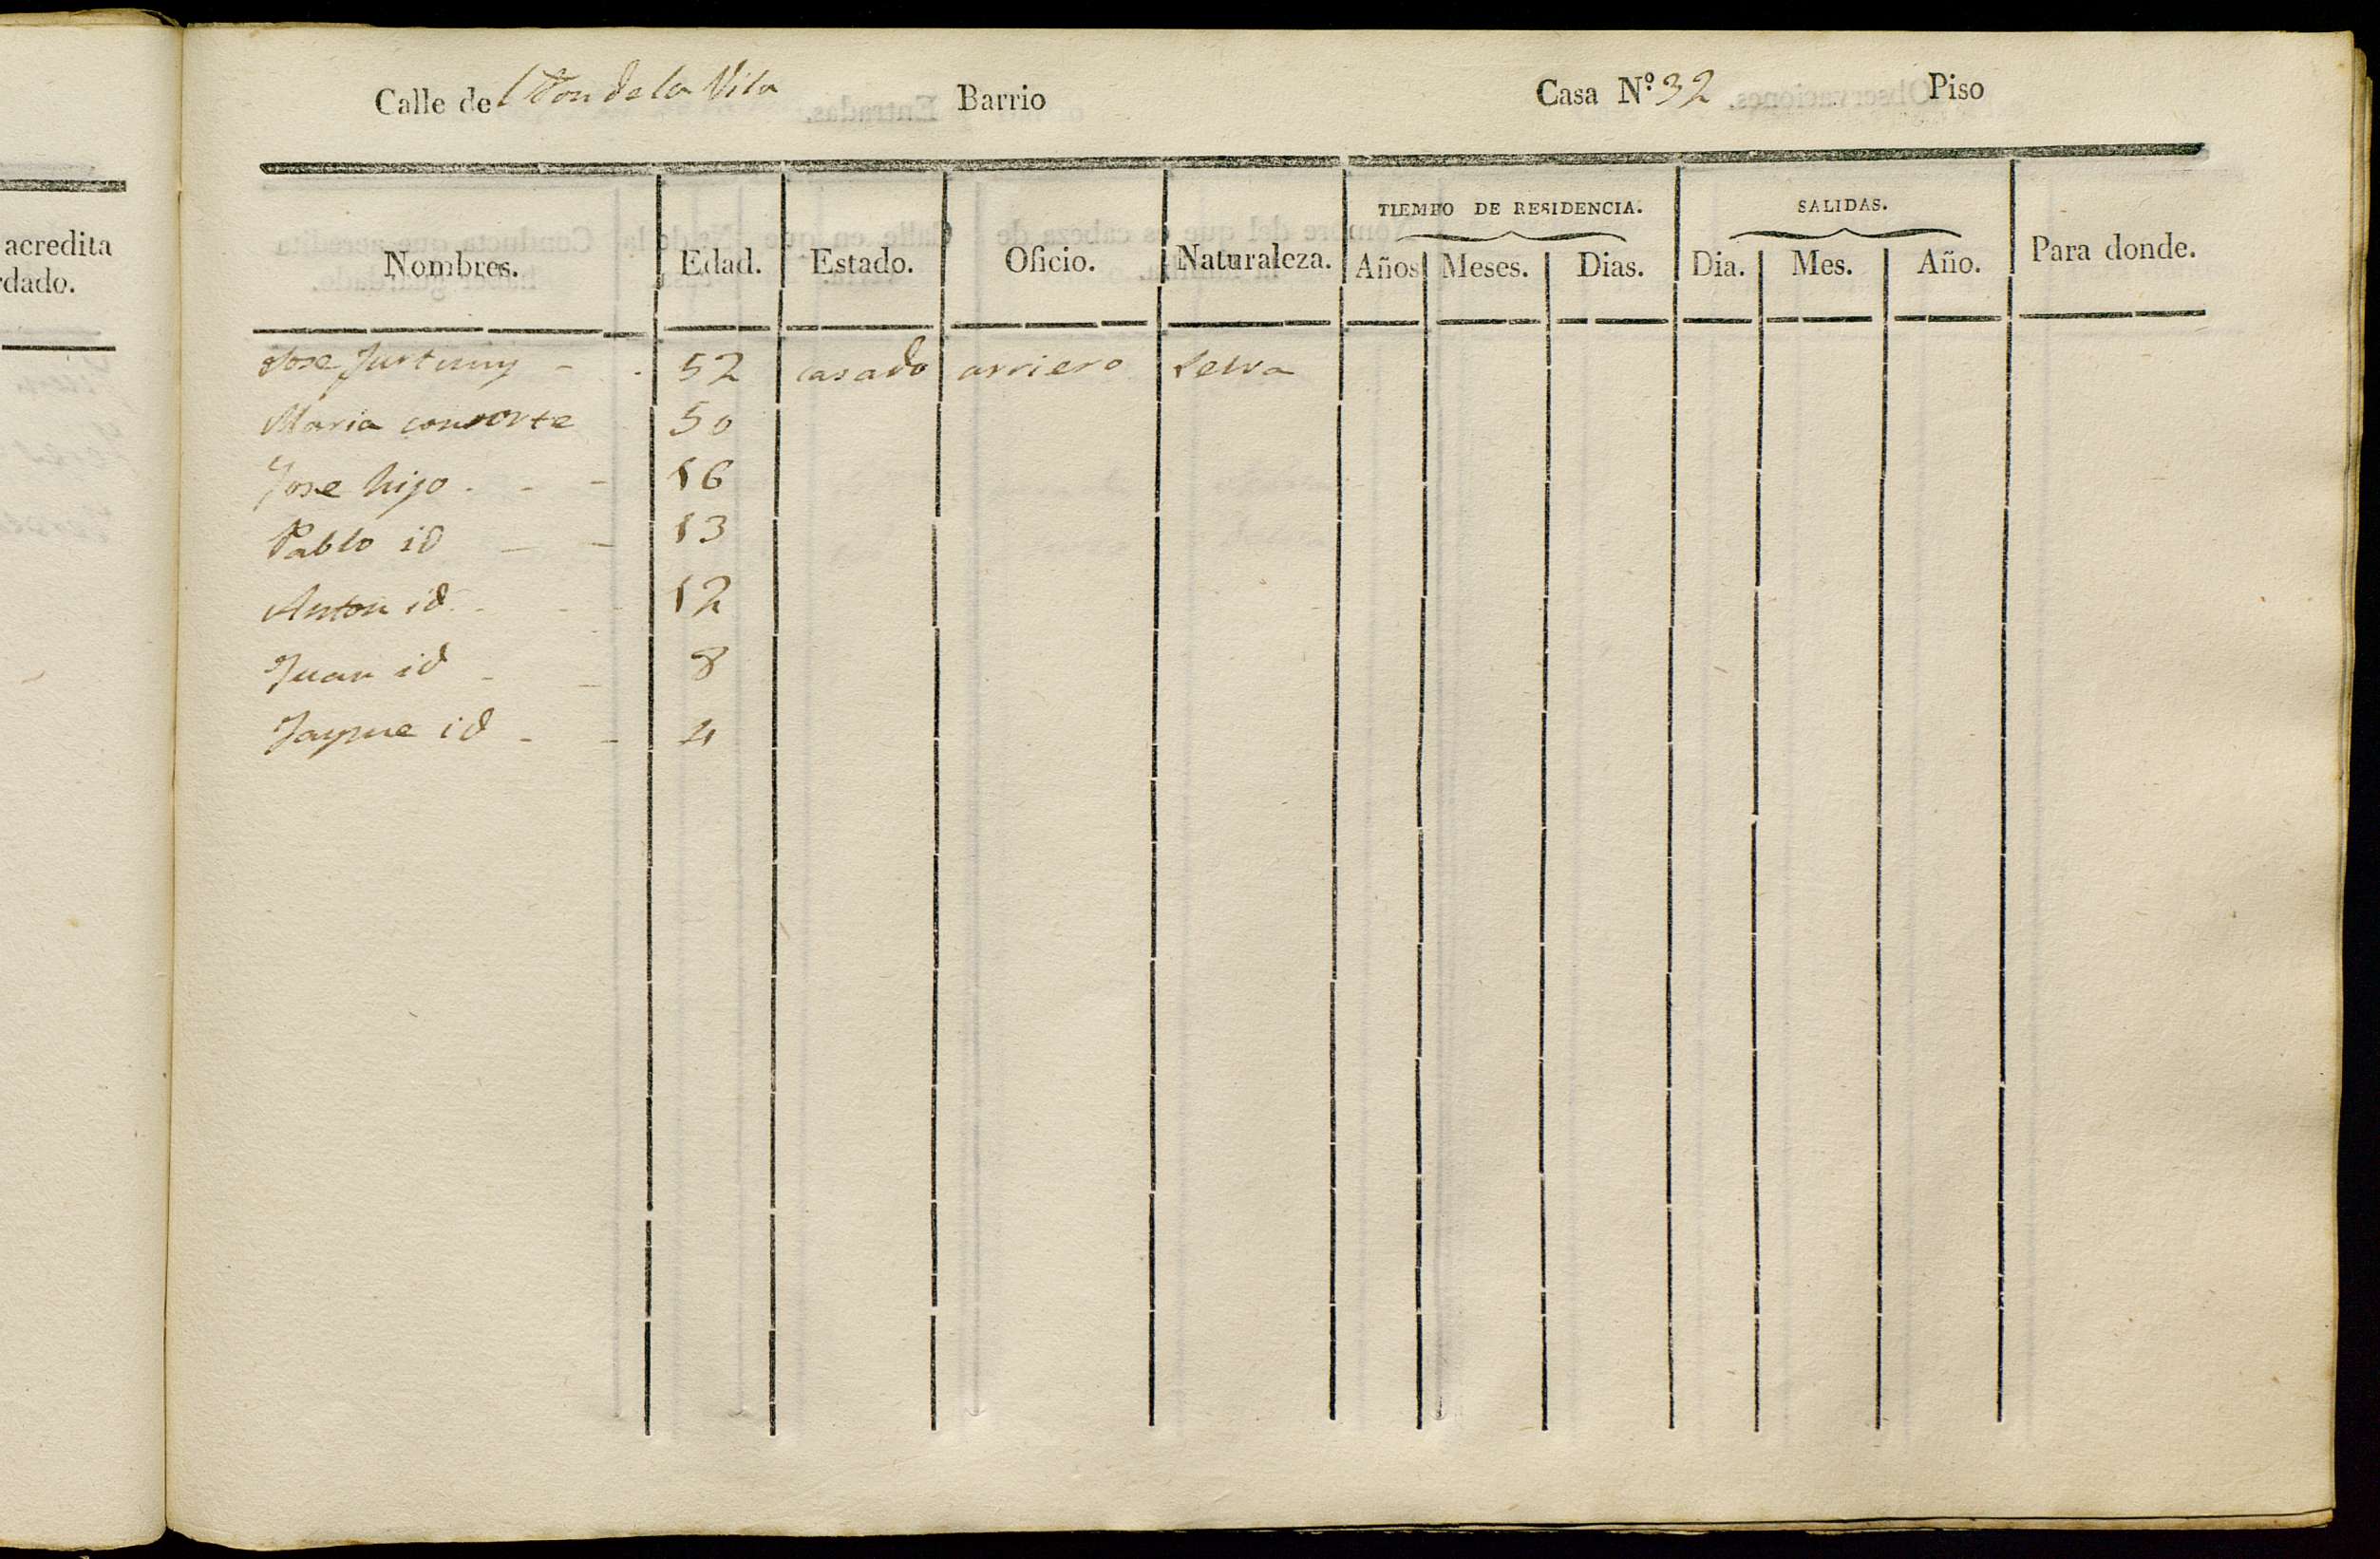 Calle del Fon de la Vila Barrio Casa N.º 32 Piso
acredita
rdado.
TIEMPO DE RESIDENCIA. SALIDAS.
Nombres. Edad. Estado. Oficio. Naturaleza. Años Meses. Dias. Dia. Mes. Año. Para donde.
Jose 52 casado arriero Selva
Maria consorte 50
Jose hijo 16
Pablo id 13
Anton id 12
Juan id 8
Jayme id 4